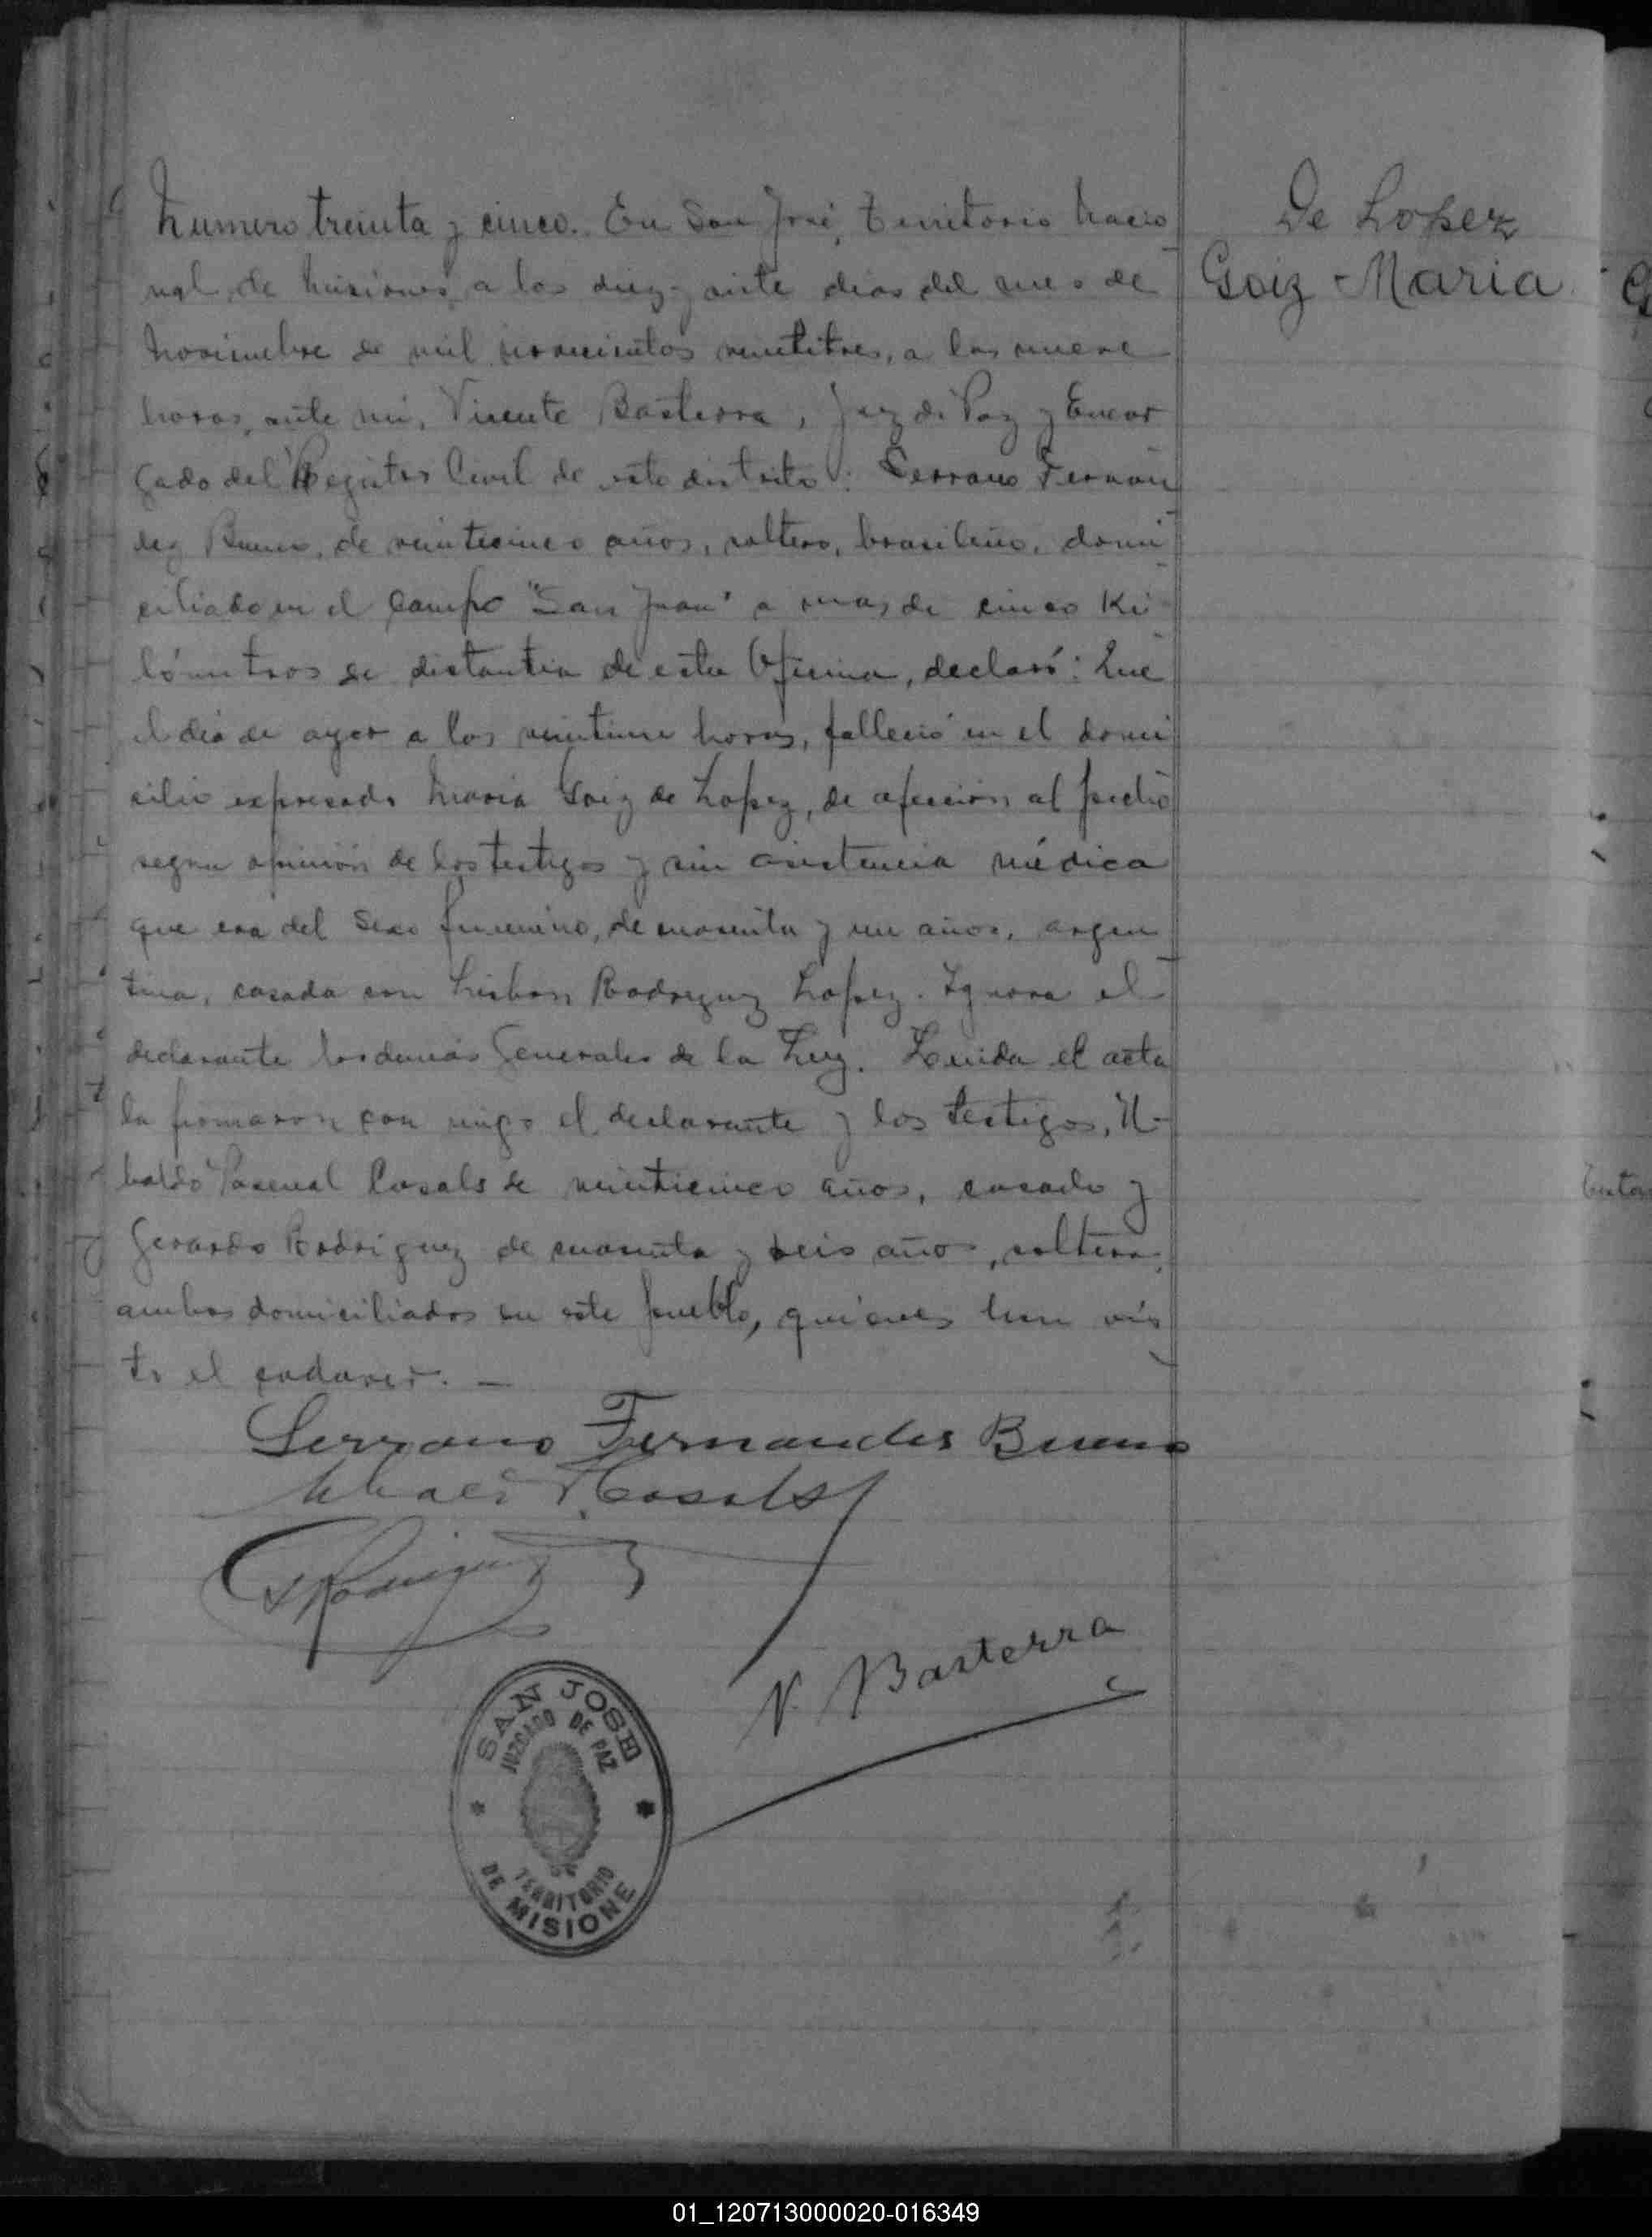 De Lopez
Goiz - Maria
Numero treinta y cinco. En San José, Territorio Nacio
nal de Misiones, a los diez y siete dias del mes de
Noviembre de mil novecientos veintitres, a las nueve
horas, ante mi, Vicente Basterra, Juez de Paz y Encar
gado del Registro Civil de este distrito: Serrano Fernán
dez Bueno, de veinticinco años, soltero, brasileño, domi
ciliado en el campo "San Juan" a mas de cinco Ki
lómetros de distantia de esta Oficina, declaró: Que
el dia de ayer a las horas, falleció en el domi
cilio expresado Maria Goiz de Lopez, de afección al pecho
segun opinión de los testigos y sin asistencia médica
que era del sexo femenino, de y un años, argen
tina, casada con Rodriguez Lopez. Ignora el
declarante las demás Generales de la Ley. Leida el acta
la firmaron con migo el declarante y los testigos, U-
baldo Pascual Casals de veinticinco años, casado y
Gerardo Rodriguez de cuarenta y seis años, soltero,
ambos domiciliados en este pueblo, quienes han vis
to el cadaver. —
Serrano Fernandes Bueno
Ubaldo P. Casals
G Rodriguez
V. Basterra
SAN JOSE
JUZGADO DE PAZ
TERRITORIO
DE MISIONE
01_120713000020-016349